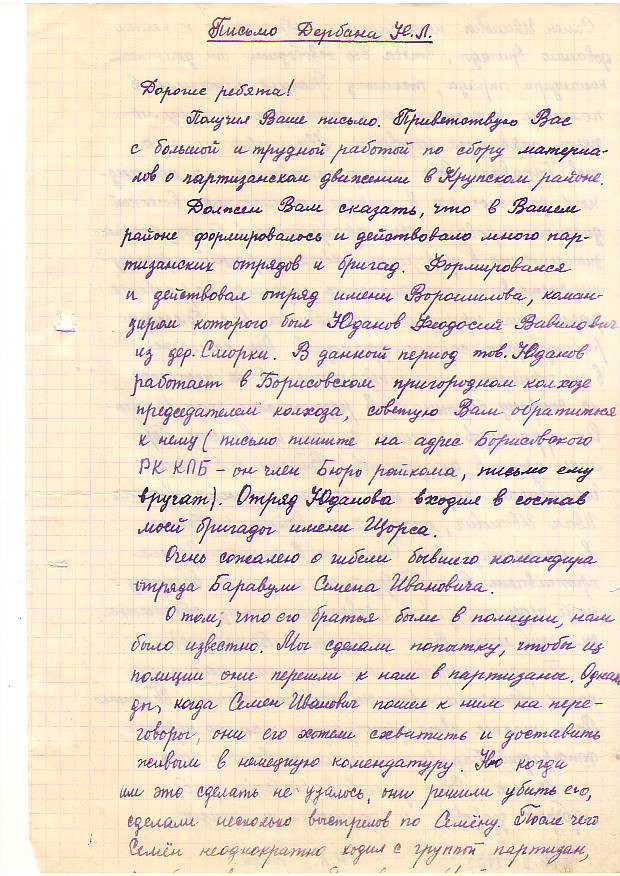 Письмо Дербана Н.Л.
Дорогие ребята!
Получил Ваше письмо. Приветствую Вас
с большой и трудной работой по сбору материа-
лов о партизанском движении в Крупском районе.
Должен Вам сказать, что в Вашем
районе формировалось и действовало много пар-
тизанских отрядов и бригад. Формировался
и действовал отряд имени Ворошилова, коман-
диром которого был Юданов Феодосий Вавилович
из дер. Сморки. В данный период тов. Юданов
работает в Борисовском пригородном колхозе
председателем колхоза, советую Вам обратиться
к нему (письмо пишите на адрес Борисовского
РК КПБ – он член Бюро райкома, письмо ему
вручат). Отряд Юданова входил в состав
моей бригады имени Щорса.
Очень сожалею о гибели бывшего командира
отряда Баравули Семена Ивановича.
О том, что его братья были в полиции, нам
было известно. Мы сделали попытку, чтобы из
полиции они перешли к нам в партизаны. Однаж
ды, когда Семен Иванович пошел к ним на пере-
говоры, они его хотели схватить и доставить
живым в немецкую комендатуру. Но когда
им это сделать не удалось, они решили убить его,
сделали несколько выстрелов по Семёну. После чего
Семён неоднократно ходил с группой партизан,